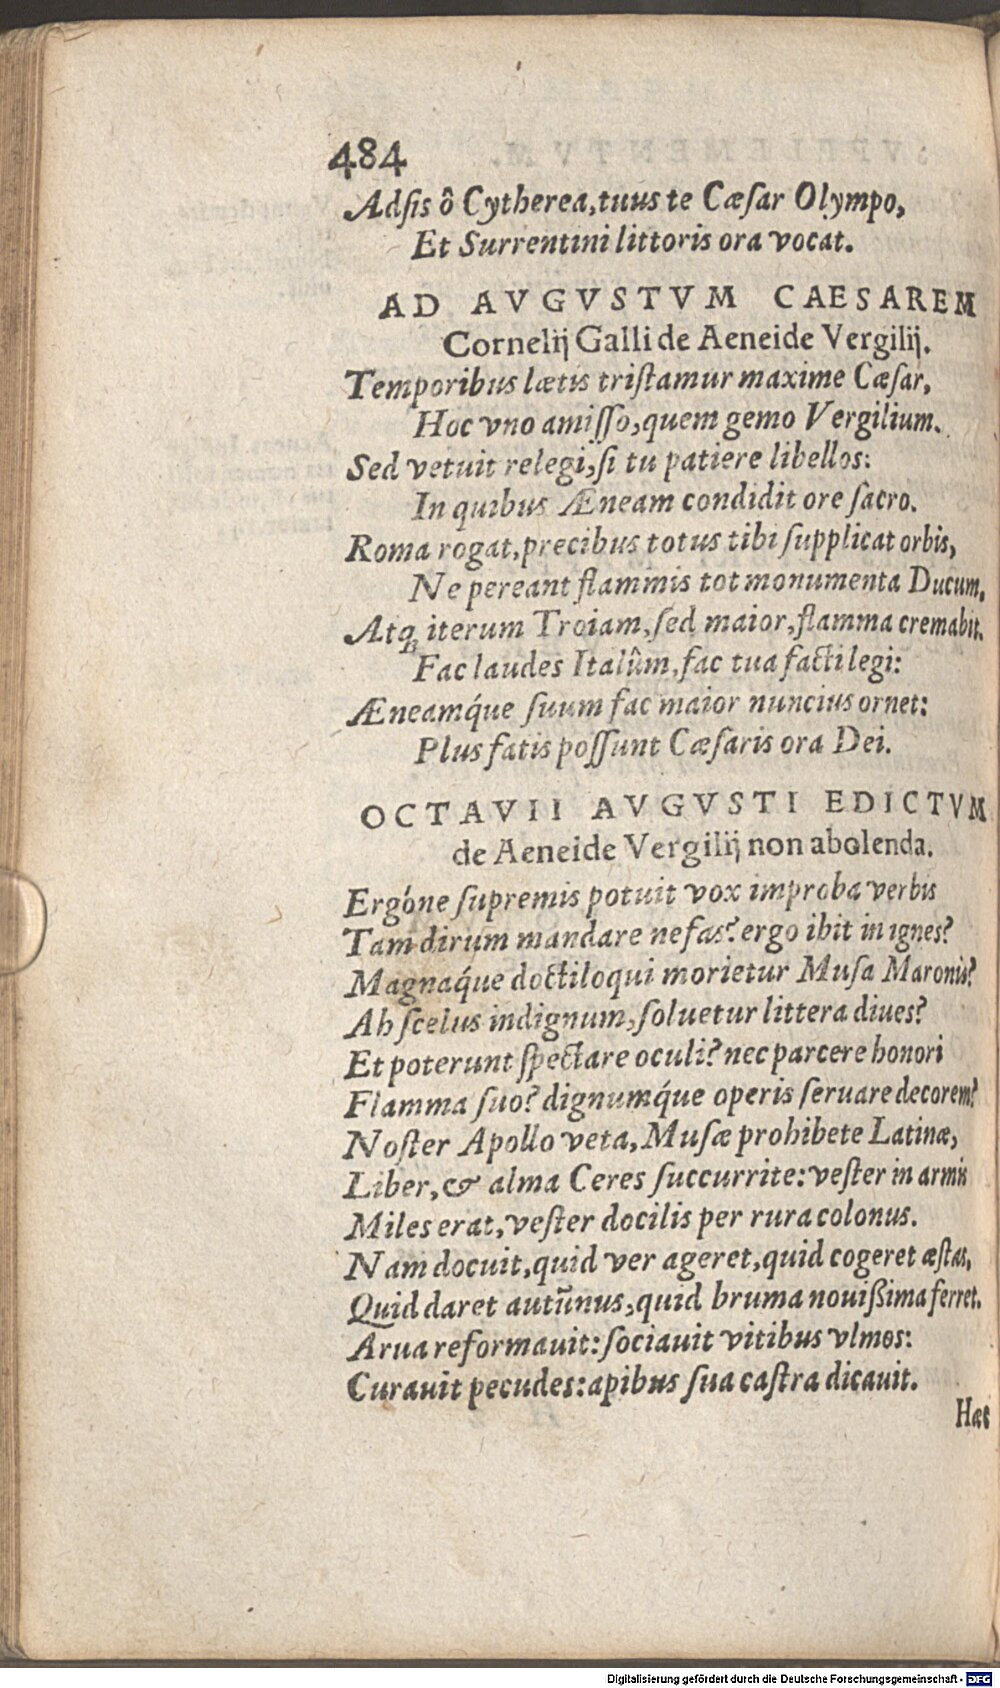 484
Adſis ô Cytherea, tuus te Cæſar Olympo,
Et Surrentini littoris ora vocat.
AD AVGVSTVM CAESAREM
Cornelij Galli de Aeneide Vergilij.
Temporibus lætis triſtamur maxime Cæſar,
Hoc vno amiſſo, quem gemo Vergilium.
Sed vetuit relegi, ſi tu patiere libellos:
In quibus Æneam condidit ore ſacro.
Roma rogat, precibus totus tibi ſupplicat orbis,
Ne pereant flammis tot monumenta Ducum.
Atq; iterum Troiam, ſed maior, flamma cremabit.
Fac laudes Italûm, fac tua facti legi:
Æneamq́ue ſuum fac maior nuncius ornet:
Plus fatis poſſunt Cæſaris ora Dei.
OCTAVII AVGVSTI EDICTVM
de Aeneide Vergilij non abolenda.
Ergóne ſupremis potuit vox improba verbis
Tam dirum mandare nefas? ergo ibit in ignes?
Magnaq́ue doctiloqui morietur Muſa Maronis?
Ah ſcelus indignum, ſoluetur littera diues?
Et poterunt ſpectare oculi? nec parcere honori
Flamma ſuo? dignumq́ue operis ſeruare decorem?
Noſter Apollo veta, Muſæ prohibete Latinæ,
Liber, & alma Ceres ſuccurrite: veſter in armis
Miles erat, veſter docilis per rura colonus.
Nam docuit, quid ver ageret, quid cogeret æſtas,
Quid daret autũnus, quid bruma nouißima ferret.
Arua reformauit: ſociauit vitibus vlmos:
Curauit pecudes: apibus ſua caſtra dicauit.
Hæc
Digitalisierung gefördert durch die Deutsche Forschungsgemeinschaft - DFG